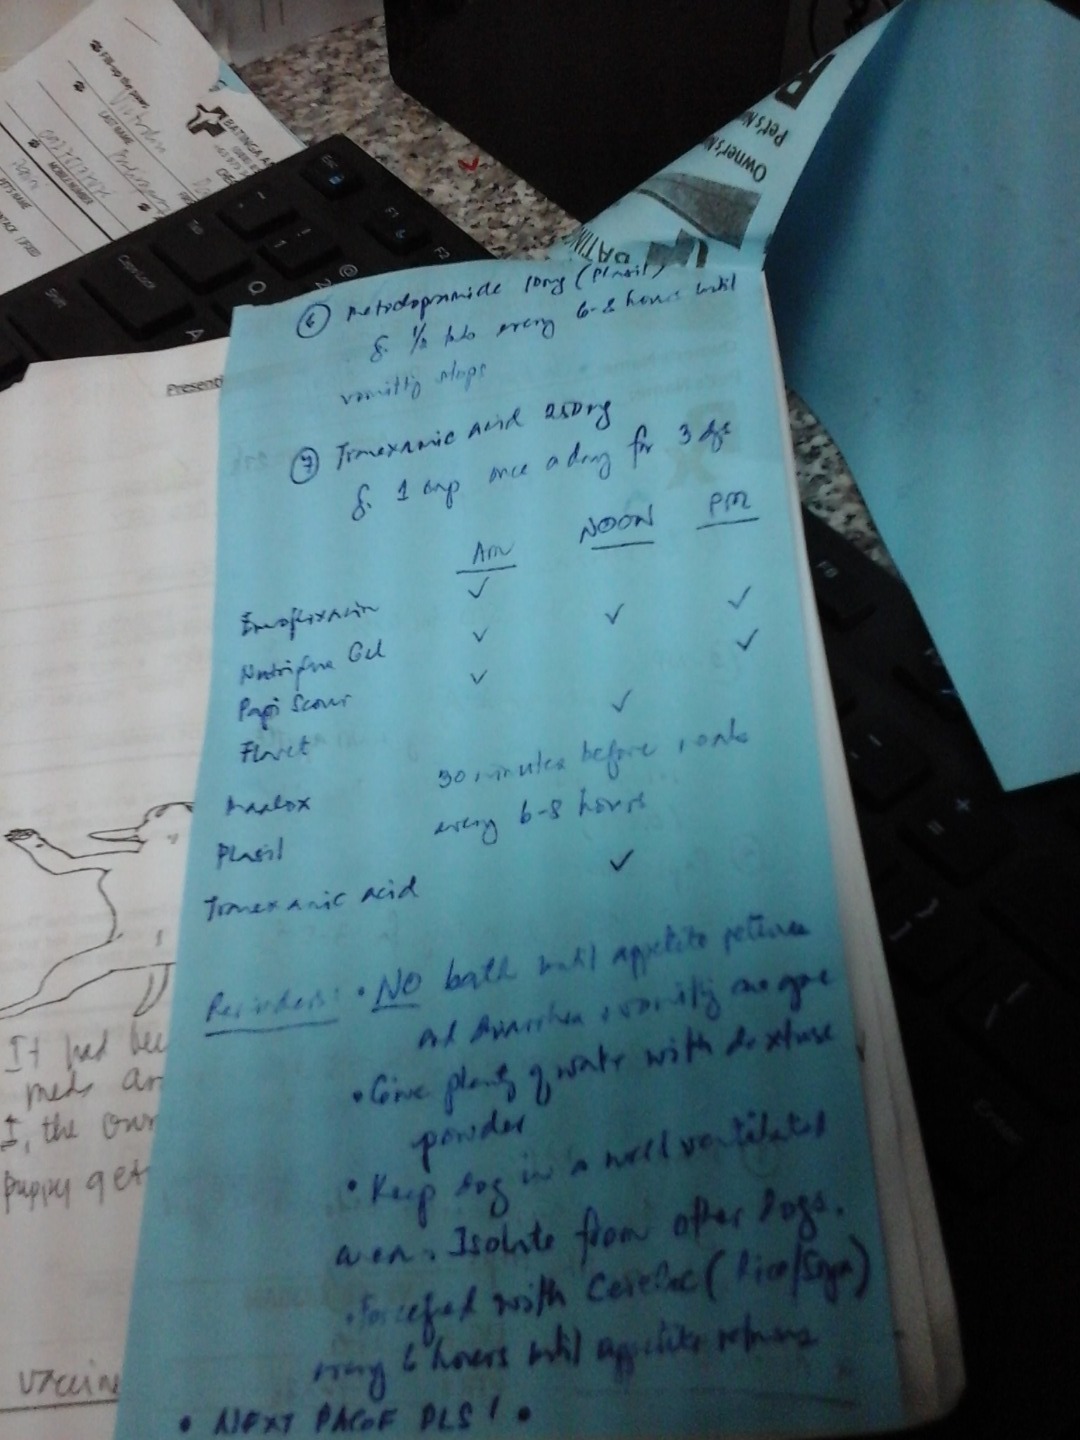 ⑥ Metoclopramide 10mg (Plasil)
S. 1/2 tab every 6-8 hours until
vomiting stops
⑦ Tranexamic Acid 250mg
S. 1 cap once a day for 3 dys
AM NOON PM
Enrofloxacin ✓ ✓
Gel ✓ ✓ ✓
Papi Scour ✓
Flavet ✓
Maalox 30 minutes before meds
Plasil every 6-8 hours
Tranexamic acid ✓
Reminders: • NO bath until appetite returns
and diarrhea & vomiting are gone
• Give plenty of water with dextrose
powder
• Keep dog in a well ventilated
area. Isolate from other dogs.
• Forcefeed with Cerelac (Rice/Soya)
every 6 hours until appetite returns
• NEXT PAGE PLS! •
Presenti
It had bee
meds an
I, the own
puppy get
vaccine
Fill-up the
LAST NAME
MOBILE NUMBER
BATINGA A
Owner's N
Pet's N
Rx
BATING
Esc
F1
F2
Tab
CapsLock
Shift
Q
A
1
2
@
Enter